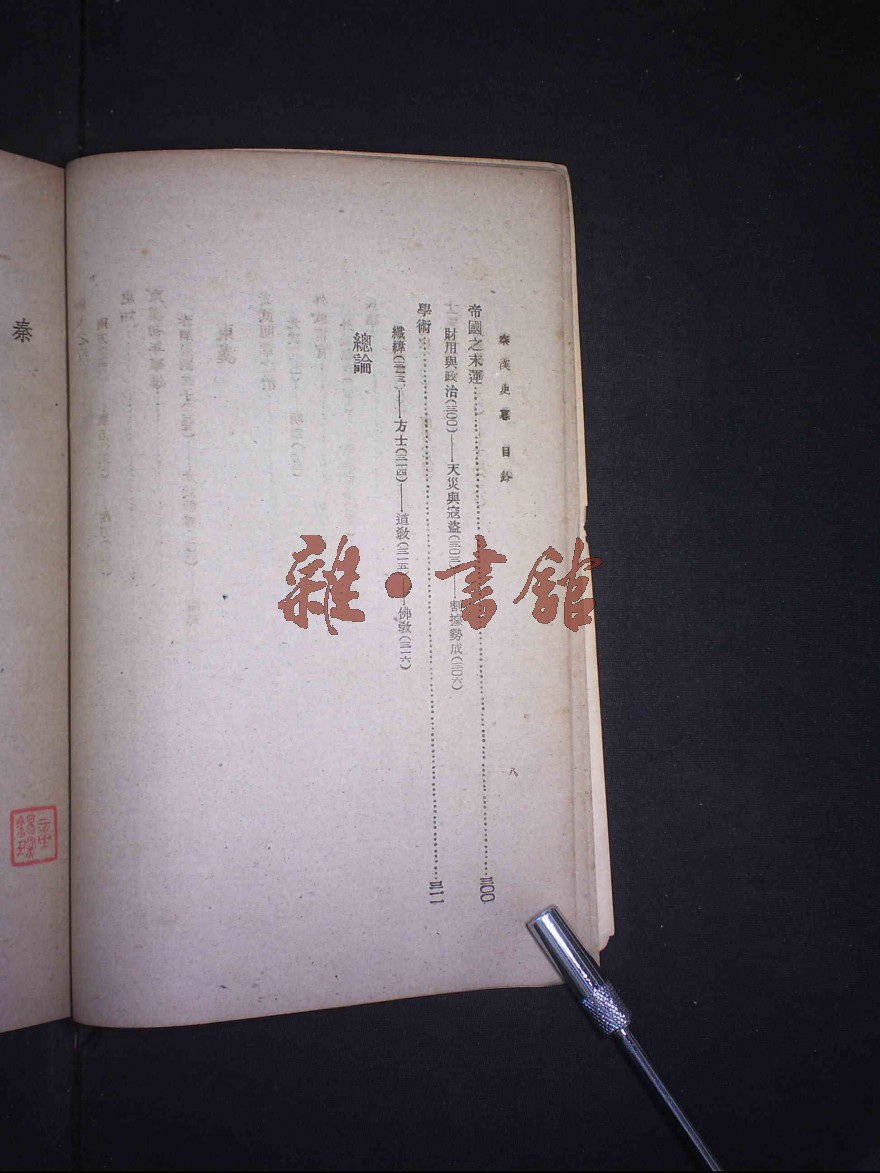 秦漢史纂　目錄
八
帝國之末運……三〇〇
財用與政治(三〇〇)——天災與寇盜(三〇三)——割據勢成(三〇六)
學術……三一一
讖緯(三一三)——方士(三一四)——道敎(三一五)——佛敎(三一六)
總論
秦
雜·書館